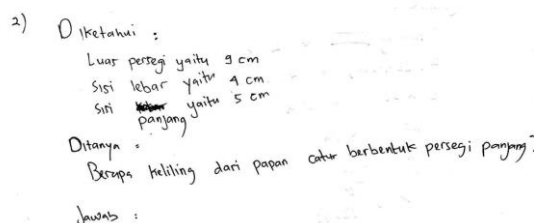 2) Diketahui :
Luas persegi yaitu 9 cm
Sisi lebar yaitu 4 cm
Sisi panjang yaitu 5 cm
Ditanya :
Berapa keliling dari papan catur berbentuk persegi panjang?
Jawab :